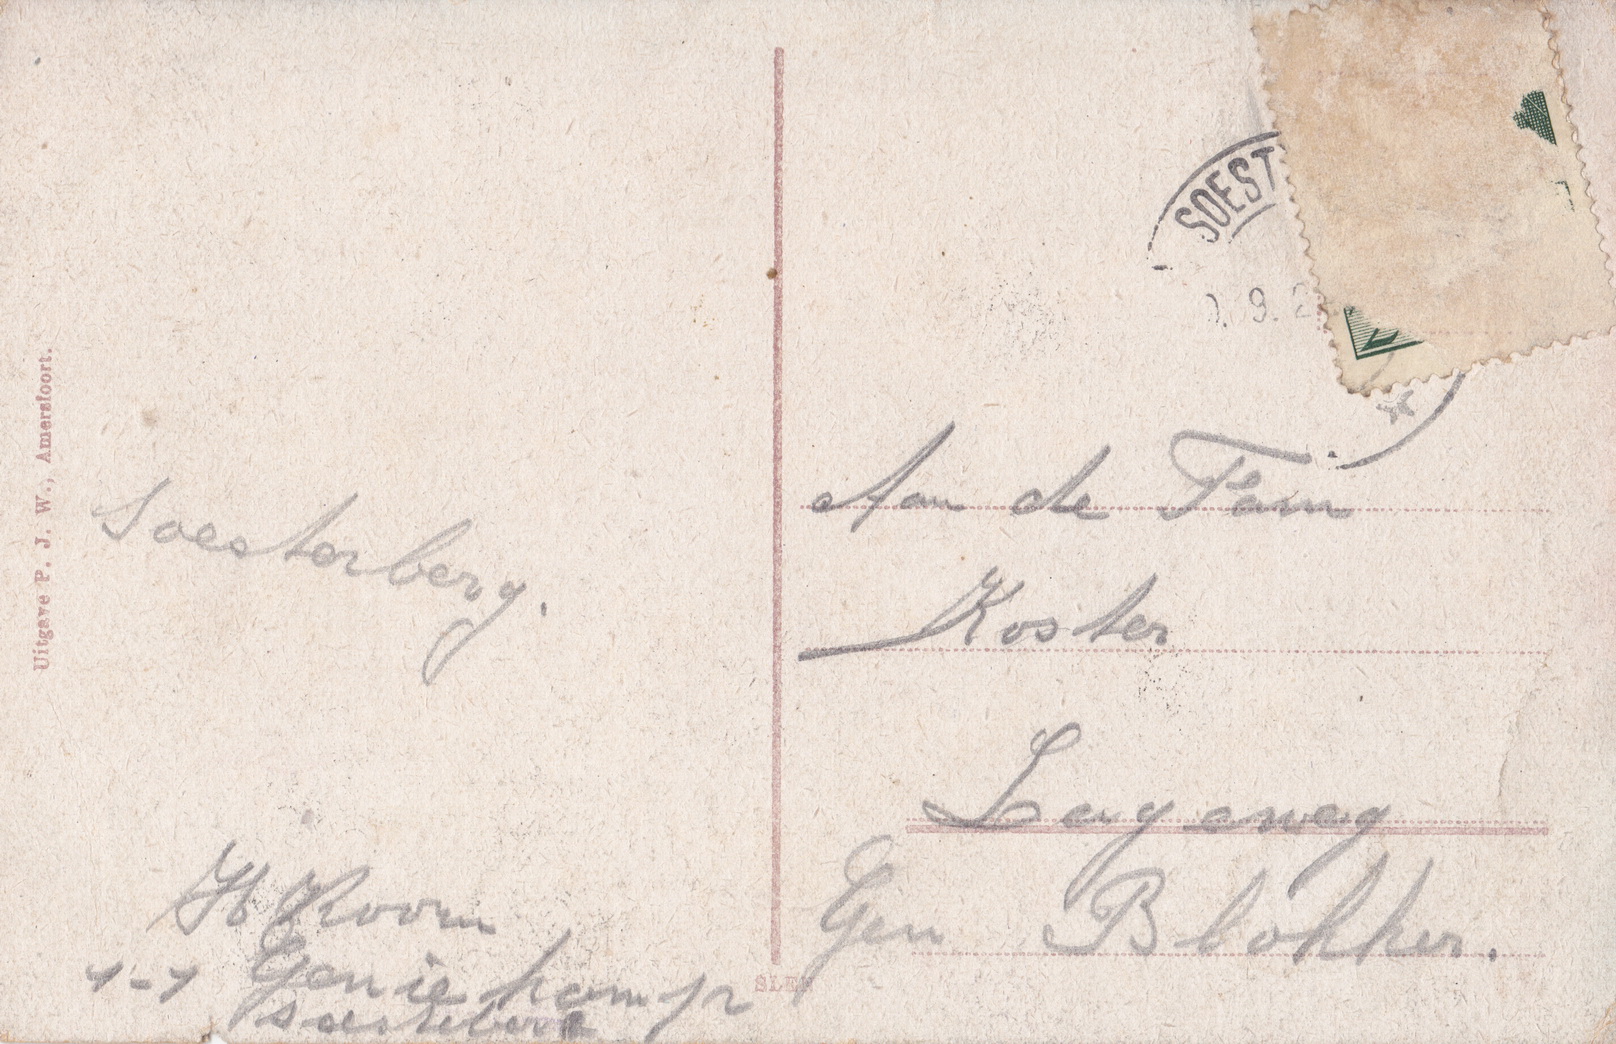 Uitgave P. J. W., Amersfoort.
Soesterberg.
H Koorn
1-1 Genie kamp
Soesterberg
SOEST
9. 2
Aan de Fam
Koster
Gen Blokker.